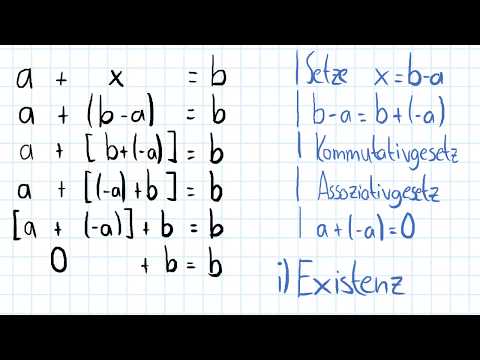 a + x = b | Setze x = b-a
a + (b-a) = b | b-a = b+(-a)
a + [b+(-a)] = b | Kommutativgesetz
a + [(-a)+b] = b | Assoziativgesetz
[a + (-a)] + b = b | a+(-a) = 0
0 + b = b
i) Existenz